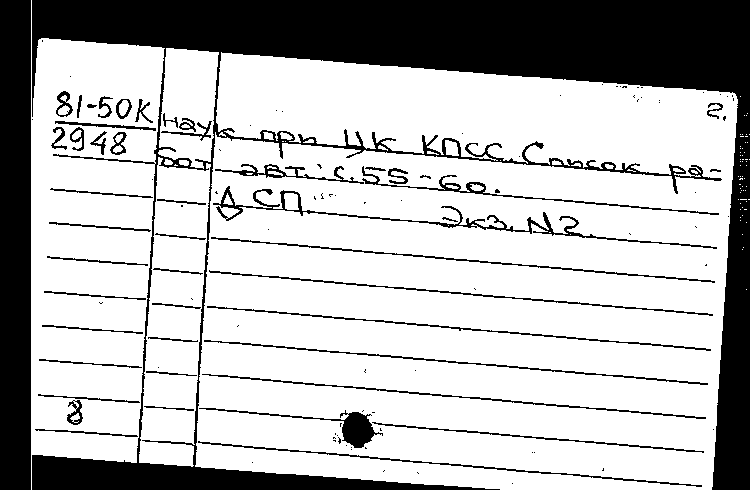 2.
81-50К наук при ЦК КПСС. Список ра-
2948 бот авт.: с. 55-60.
СП. Экз. N2.
8